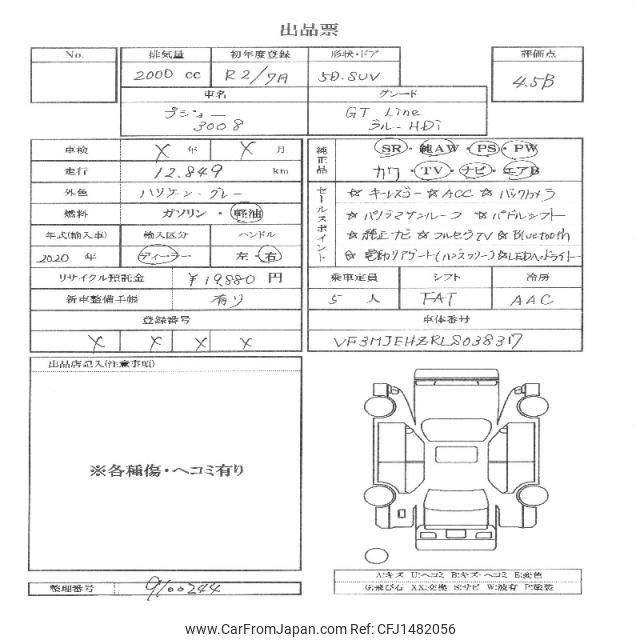 出品票
No.
排気量
初年度登録
形状・ドア
評価点
2000 cc
R2/7月
5D.SUV
4.5B
車名
グレード
プジョー
3008
GT Line
ブルーHDi
車検
X 年 X 月
走行
12.849 km
外色
ハリケーン・グレー
燃料
ガソリン・軽油
年式(輸入車)
輸入区分
ハンドル
2020 年
ディーラー
左・右
リサイクル預託金
¥19,880 円
新車整備手帳
有り
登録番号
X X X X
純正品
SR・純AW・PS・PW
カワ・TV・ナビ・エアB
セールスポイント
☆ キーレスゴー ☆ ACC ☆ バックカメラ
☆ パノラマサンルーフ ☆ パドルシフト
☆ 純正ナビ ☆ フルセグTV ☆ Bluetooth
☆ 電動リアゲート(ハンズフリー) ☆ LEDヘッドライト
乗車定員
シフト
冷房
5 人
FAT
AAC
車体番号
VF3MJEHZRLS038317
出品店記入(注意事項)
※各種傷・ヘコミ有り
A:キズ U:ヘコミ B:キズ・ヘコミ E:変色
G:飛び石 XX:交換 S:サビ W:波有 P:塗装
整理番号
9100244
www.CarFromJapan.com - CFJ1482056